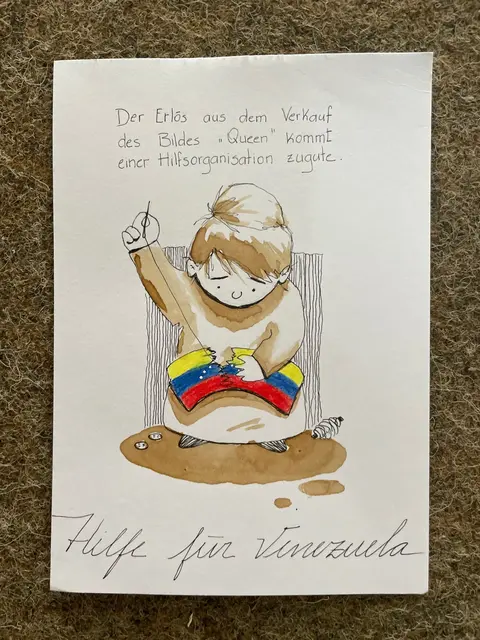 Der Erlös aus dem Verkauf
des Bildes „Queen" kommt
einer Hilfsorganisation zugute.
Hilfe für Venezuela